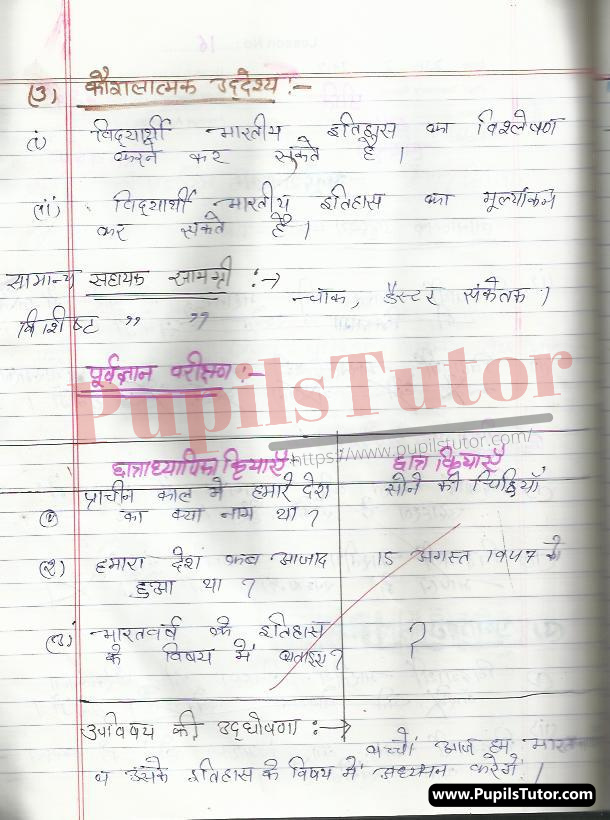 (3) कौशलात्मक उद्देश्य :-
(i) विद्यार्थी भारतीय इतिहास का विश्लेषण
करने कर सकते है ।
(ii) विद्यार्थी भारतीय इतिहास का मूल्यांकन
कर सकते है ।
सामान्य सहायक सामग्री :→
चॉक, डैस्टर संकेतक ।
विशिष्ट ,, ,,
पूर्वज्ञान परीक्षण :-
PupilsTutor
https://www.pupilstutor.com/
छात्राध्यापिका क्रियाएँ
छात्र क्रियाएँ
प्राचीन काल में हमारे देश
का क्या नाम था ?
सोने की चिड़ियाँ
(२) हमारा देश कब आजाद
हुआ था ?
15 अगस्त 1947 मे
(3) भारतवर्ष के इतिहास
के विषय में बताइए ?
?
उपविषय की उद्घोषणा :→
बच्चों आज हम भारत
व उसके इतिहास के विषय में अध्ययन करेगें ।
www.PupilsTutor.com